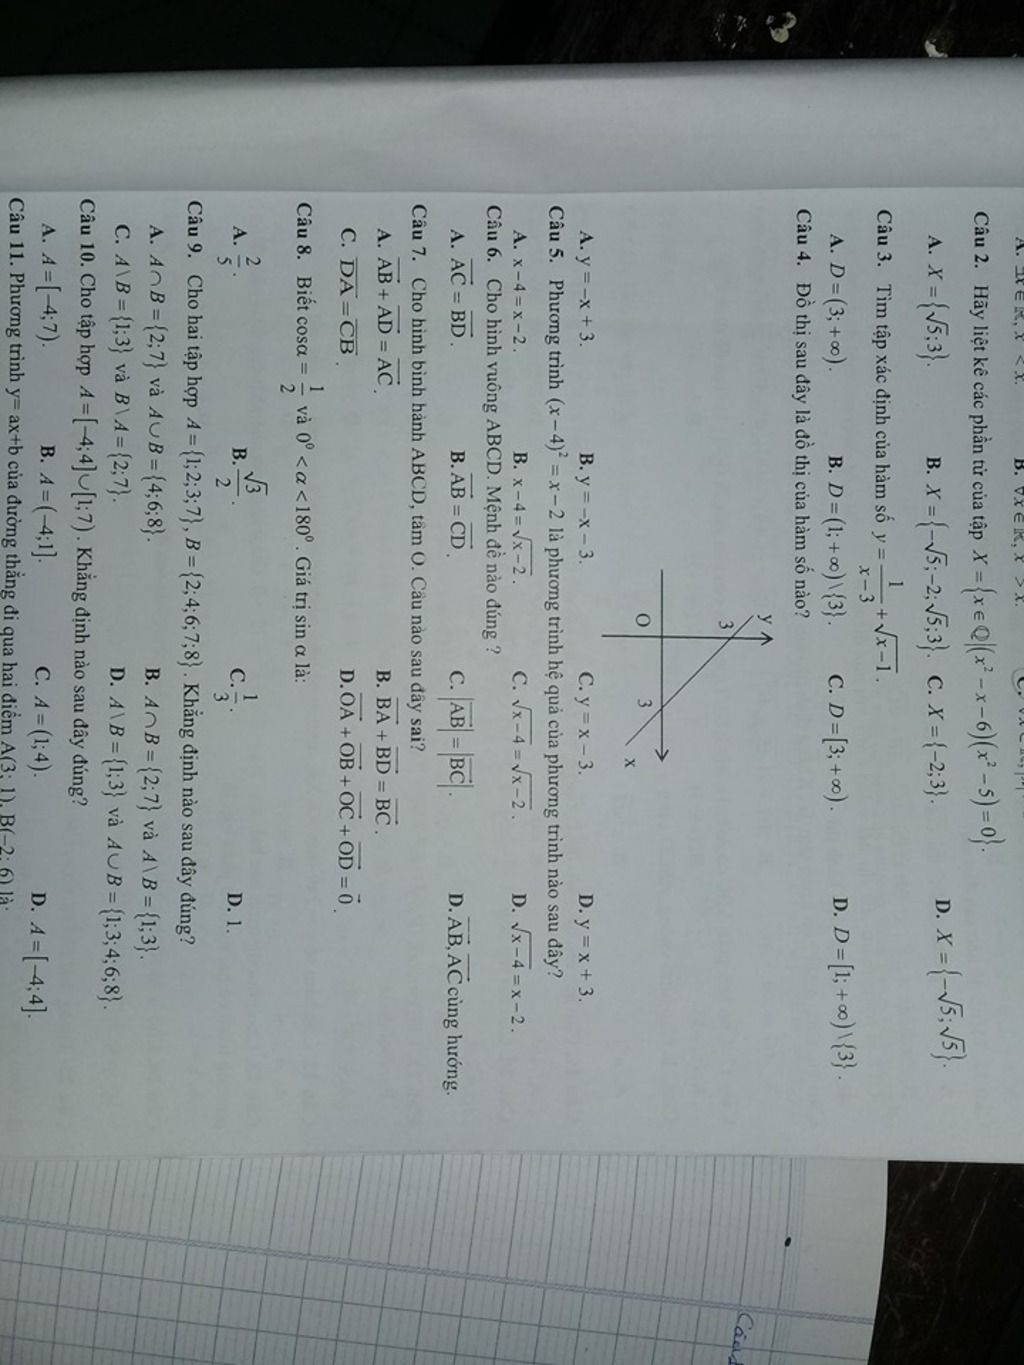 A. ∃x∈ℝ, x < x. B. ∀x∈ℝ, x > x. C.
Câu 2. Hãy liệt kê các phần tử của tập X = {x∈ℚ|(x² − x − 6)(x² − 5) = 0}.
A. X = {√5;3}. B. X = {−√5;−2;√5;3}. C. X = {−2;3}. D. X = {−√5;√5}.
Câu 3. Tìm tập xác định của hàm số y = 1/(x−3) + √(x−1).
A. D = (3;+∞). B. D = (1;+∞)\{3}. C. D = [3;+∞). D. D = [1;+∞)\{3}.
Câu 4. Đồ thị sau đây là đồ thị của hàm số nào?
y
3
O 3
x
A. y = −x + 3. B. y = −x − 3. C. y = x − 3. D. y = x + 3.
Câu 5. Phương trình (x−4)² = x − 2 là phương trình hệ quả của phương trình nào sau đây?
A. x − 4 = x − 2. B. x − 4 = √(x−2). C. √(x−4) = √(x−2). D. √(x−4) = x − 2.
Câu 6. Cho hình vuông ABCD. Mệnh đề nào đúng ?
A. AC⃗ = BD⃗. B. AB⃗ = CD⃗. C. |AB⃗| = |BC⃗|. D. AB⃗, AC⃗ cùng hướng.
Câu 7. Cho hình bình hành ABCD, tâm O. Câu nào sau đây sai?
A. AB⃗ + AD⃗ = AC⃗. B. BA⃗ + BD⃗ = BC⃗.
C. DA⃗ = CB⃗. D. OA⃗ + OB⃗ + OC⃗ + OD⃗ = 0⃗.
Câu 8. Biết cosα = 1/2 và 0⁰ < α < 180⁰. Giá trị sin α là:
A. 2/5. B. √3/2. C. 1/3. D. 1.
Câu 9. Cho hai tập hợp A = {1;2;3;7}, B = {2;4;6;7;8}. Khẳng định nào sau đây đúng?
A. A∩B = {2;7} và A∪B = {4;6;8}. B. A∩B = {2;7} và A\B = {1;3}.
C. A\B = {1;3} và B\A = {2;7}. D. A\B = {1;3} và A∪B = {1;3;4;6;8}.
Câu 10. Cho tập hợp A = [−4;4]∪[1;7). Khẳng định nào sau đây đúng?
A. A = [−4;7). B. A = (−4;1]. C. A = (1;4). D. A = [−4;4].
Câu 11. Phương trình y= ax+b của đường thẳng đi qua hai điểm A(3; 1), B(−2; 6) là: